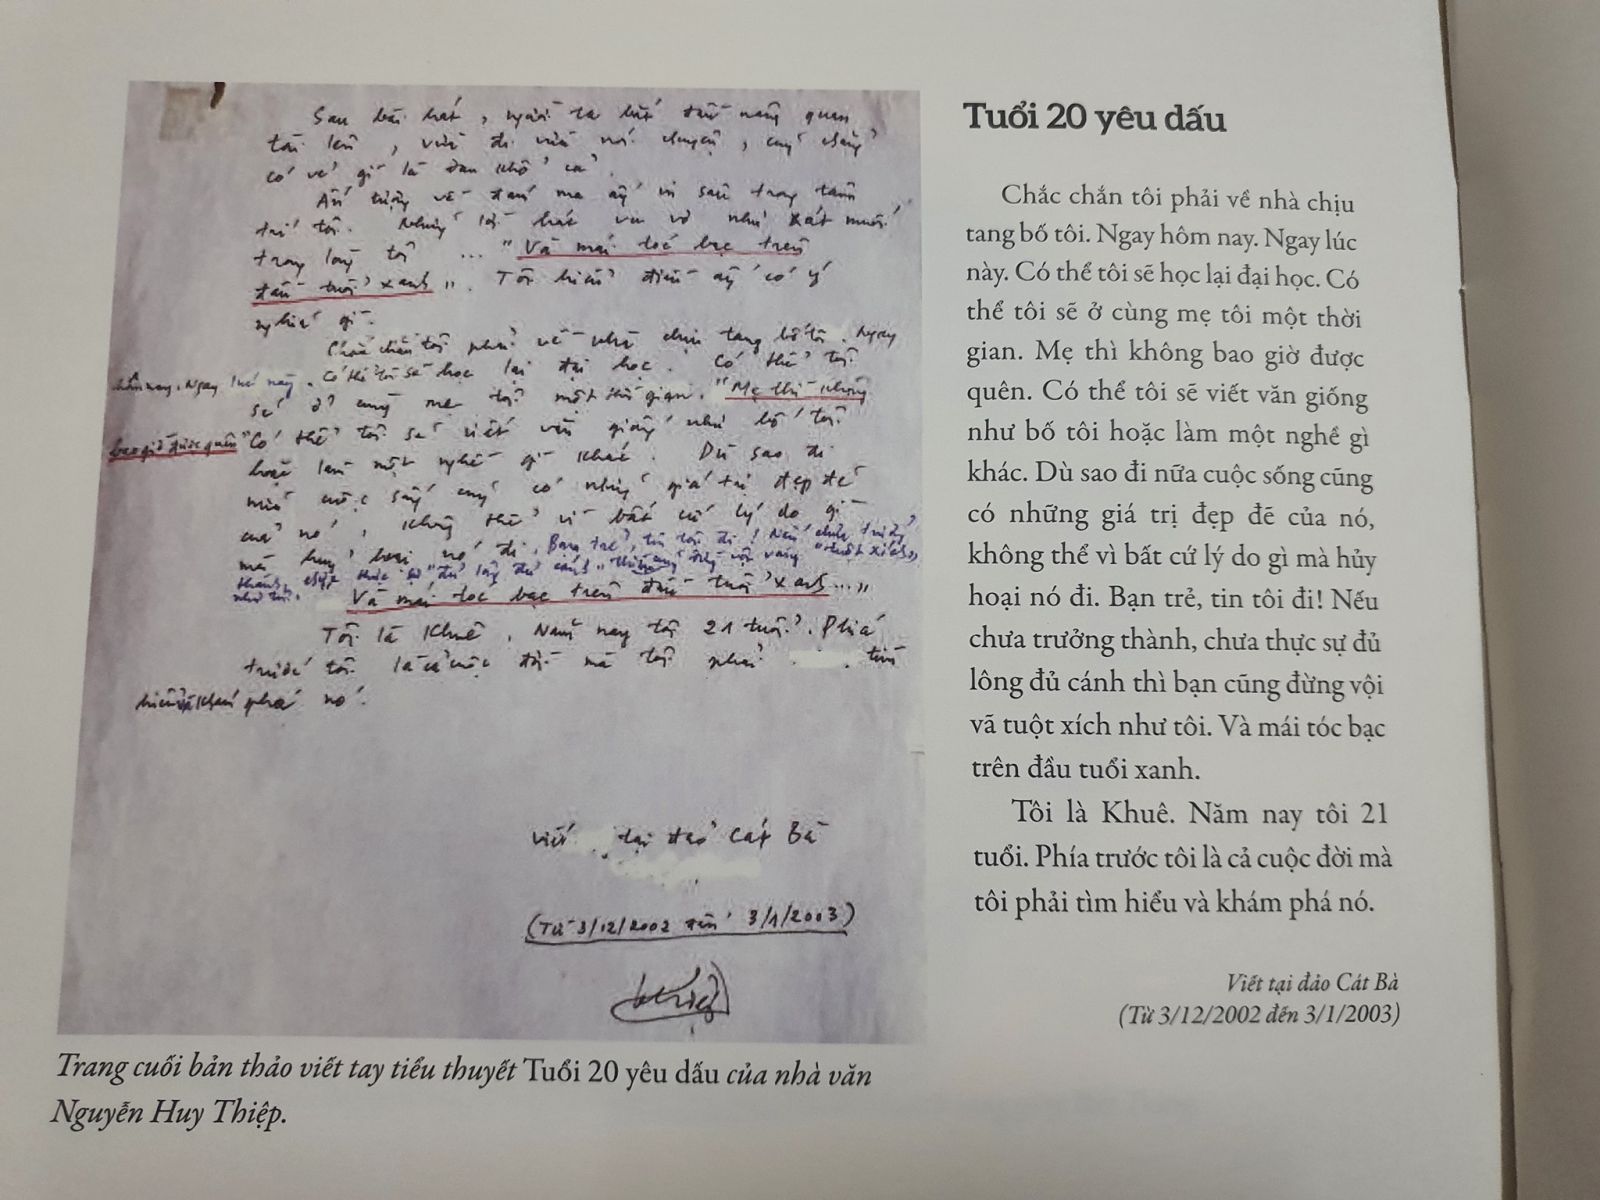 Sau bài hát, người ta bắt đầu nâng quan
tài lên, vừa đi vừa nói chuyện, cũng chẳng
có vẻ gì là đau khổ cả.
Ấn tượng về đám ma ấy in sâu trong tâm
trí tôi. Những lời hát vu vơ như xát muối
trong lòng tôi ... "Và mái tóc bạc trên
đầu tuổi xanh". Tôi hiểu điều ấy có ý
nghĩa gì.
Chắc chắn tôi phải về nhà chịu tang bố tôi. Ngay
hôm nay. Ngay lúc này. Có thể tôi sẽ học lại đại học. Có thể tôi
sẽ ở cùng mẹ tôi một thời gian. "Mẹ thì không
bao giờ được quên" Có thể tôi sẽ viết văn giống như bố tôi
hoặc làm một nghề gì khác. Dù sao đi
nữa cuộc sống cũng có những giá trị đẹp đẽ
của nó, không thể vì bất cứ lý do gì
mà hủy hoại nó đi. Bạn trẻ, tin tôi đi! Nếu chưa trưởng
thành, chưa thực sự "đủ lông đủ cánh" thì cũng đừng vội vàng "tuột xích"
như tôi.
Và mái tóc bạc trên đầu tuổi xanh..."
Tôi là Khuê. Năm nay tôi 21 tuổi. Phía
trước tôi là cả cuộc đời mà tôi phải tìm
hiểu và khám phá nó.
Viết tại đảo Cát Bà
(Từ 3/12/2002 đến 3/1/2003)
Trang cuối bản thảo viết tay tiểu thuyết Tuổi 20 yêu dấu của nhà văn
Nguyễn Huy Thiệp.
Tuổi 20 yêu dấu
Chắc chắn tôi phải về nhà chịu
tang bố tôi. Ngay hôm nay. Ngay lúc
này. Có thể tôi sẽ học lại đại học. Có
thể tôi sẽ ở cùng mẹ tôi một thời
gian. Mẹ thì không bao giờ được
quên. Có thể tôi sẽ viết văn giống
như bố tôi hoặc làm một nghề gì
khác. Dù sao đi nữa cuộc sống cũng
có những giá trị đẹp đẽ của nó,
không thể vì bất cứ lý do gì mà hủy
hoại nó đi. Bạn trẻ, tin tôi đi! Nếu
chưa trưởng thành, chưa thực sự đủ
lông đủ cánh thì bạn cũng đừng vội
vã tuột xích như tôi. Và mái tóc bạc
trên đầu tuổi xanh.
Tôi là Khuê. Năm nay tôi 21
tuổi. Phía trước tôi là cả cuộc đời mà
tôi phải tìm hiểu và khám phá nó.
Viết tại đảo Cát Bà
(Từ 3/12/2002 đến 3/1/2003)